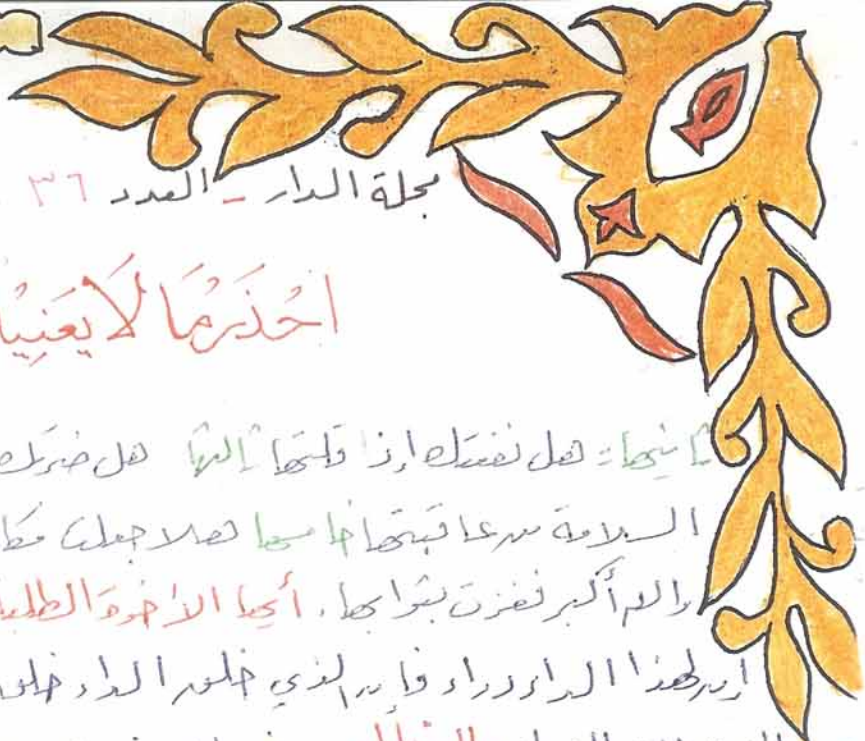 مجلة الدار - العدد ٣٦
احْذَرْ مَا لَا يَعْنِي
ثانيها: هل نفعتك إذا قلتها ثالثها هل ضرتك
السلامة من عاقبتها خامسها هلا جعلت مكا
والله أكبر لفزت بثوابها. أيها الأخوة الطلبة
إن لهذا الداء دواء فإن الذي خلق الداء خلق